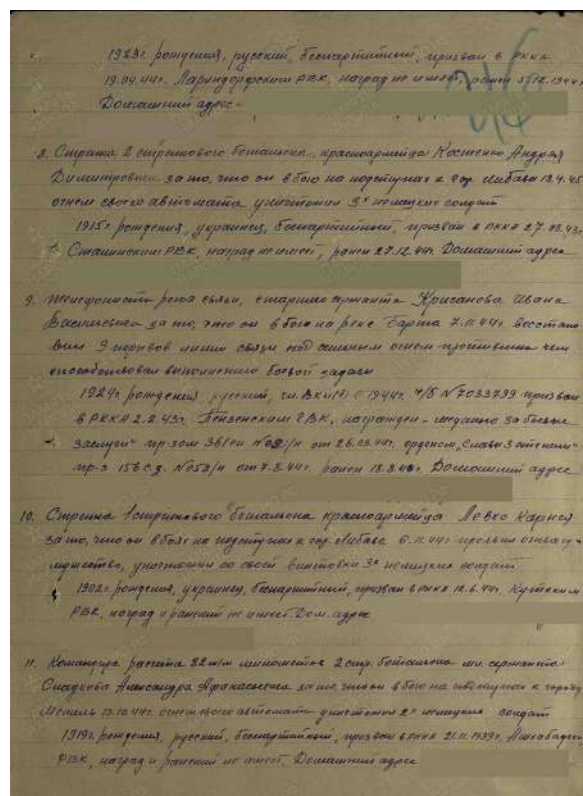 1923г. рождения, русский, беспартийный, призван в РККА
19.04.44г. Лариндорфским РВК, наград не имеет, ранен 5.12.1944г.
Домашний адрес -
8. Стрелка 2 стрелкового батальона, красноармейца Костенко Андрея
Димитровича за то, что он в бою на подступах к гор. Либава 19.4.45
огнем своего автомата уничтожил 3х немецких солдат
1915г. рождения, украинец, беспартийный, призван в РККА 27.08.43г.
Сталинским РВК, наград не имеет, ранен 27.12.44г. Домашний адрес
9. Телефониста роты связи, старшего сержанта Крисанова Ивана
Васильевича за то, что он в бою на реке Барта 7.11.44г. восстано-
вил 9 порывов линии связи под сильным огнем противника чем
способствовал выполнению боевой задачи
1924г. рождения русский, чл. ВКП(б) с 1944г. ч/б №7033799 призван
в РККА 2.2.43г. Пензенским ГВК, награжден „медалью За боевые
заслуги" пр-зом 361сп от 26.03.44г. орденом „Славы 3 степени"
пр-з 156 с.д. №058/н от 7.8.44г. ранен Домашний адрес
10. Стрелка 1 стрелкового батальона красноармейца Левко Карнея
за то, что он в боях на подступах к гор. Либава 6.11.44г проявил отвагу и
мужество, уничтожил со своей винтовки 3х немецких солдат
1902г. рождения, украинец, беспартийный, призван в РККА 18.6.44г. Кутским
РВК, наград и ранений не имеет. Дом. адрес
11. Командира расчета 82 м/м минометов 2 стр. батальона мл. сержанта
Сладкова Александра Афанасьевича за то, что он в бою на подступах к городу
Мемель 13.10.44г. огнем своего автомата уничтожил 2х немецких солдат
1919г. рождения, русский, беспартийный, призван в РККА 21.11.1939г. Ашхабадским
РВК, наград и ранений не имеет. Домашний адрес